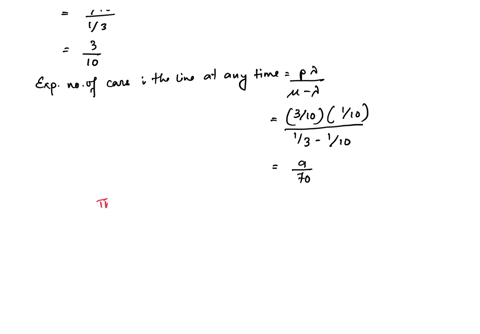 =
1/3
= 3/10
Exp. no. of cars i the line at any time = ρλ/μ-λ
= (3/10)(1/10)/1/3 - 1/10
= 9/70
π